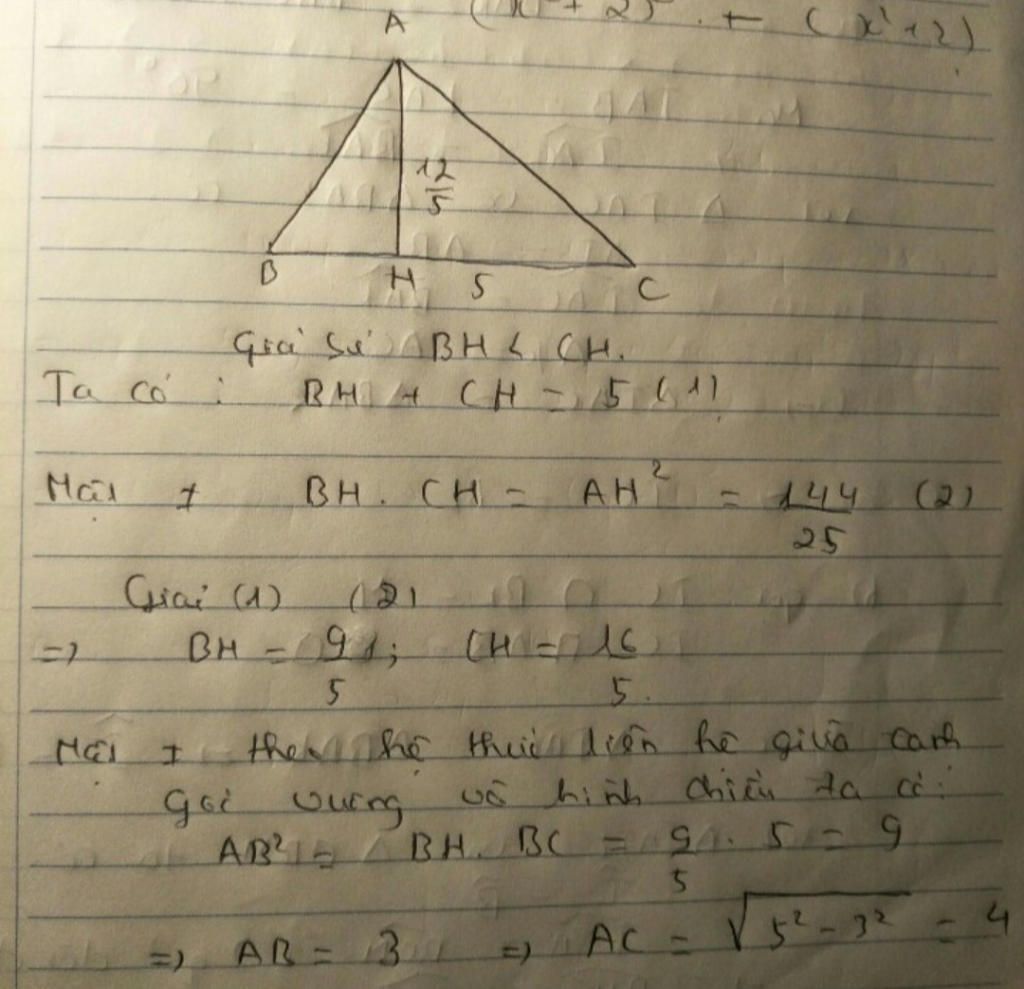 (x² + 2)² + (x² + 2)
A
12
5
B H 5 C
Giả sử BH < CH.
Ta có : BH + CH = 5 (1)
Mặt ≠ BH . CH = AH² = 144/25 (2)
Giải (1) (2)
=> BH = 9/5 ; CH = 16/5.
Mặt ≠ theo hệ thức liên hệ giữa cạnh
góc vuông và hình chiếu ta có:
AB² = BH . BC = 9/5 . 5 = 9
=> AB = 3 => AC = √5² - 3² = 4